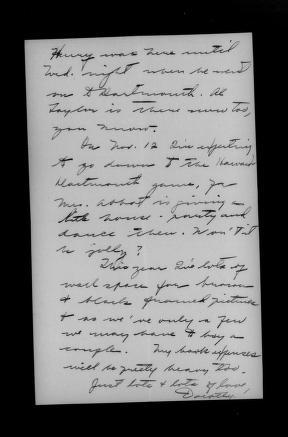 Henry was here until
Wed. night when he went
on to Dartmouth. Al
Taylor is there now too,
you know.
On Nov. 12 I'm expecting
to go down to the Harvard
Dartmouth game, for
Mrs. Abbot is giving a
little house-party and
dance then. Won't it
be jolly?
This year I've lots of
wall space for brown
& black framed pictures
& as we've only a few
we may have to buy a
couple. My book expenses
will be pretty heavy too.
Just lots & lots of love,
Dorothy